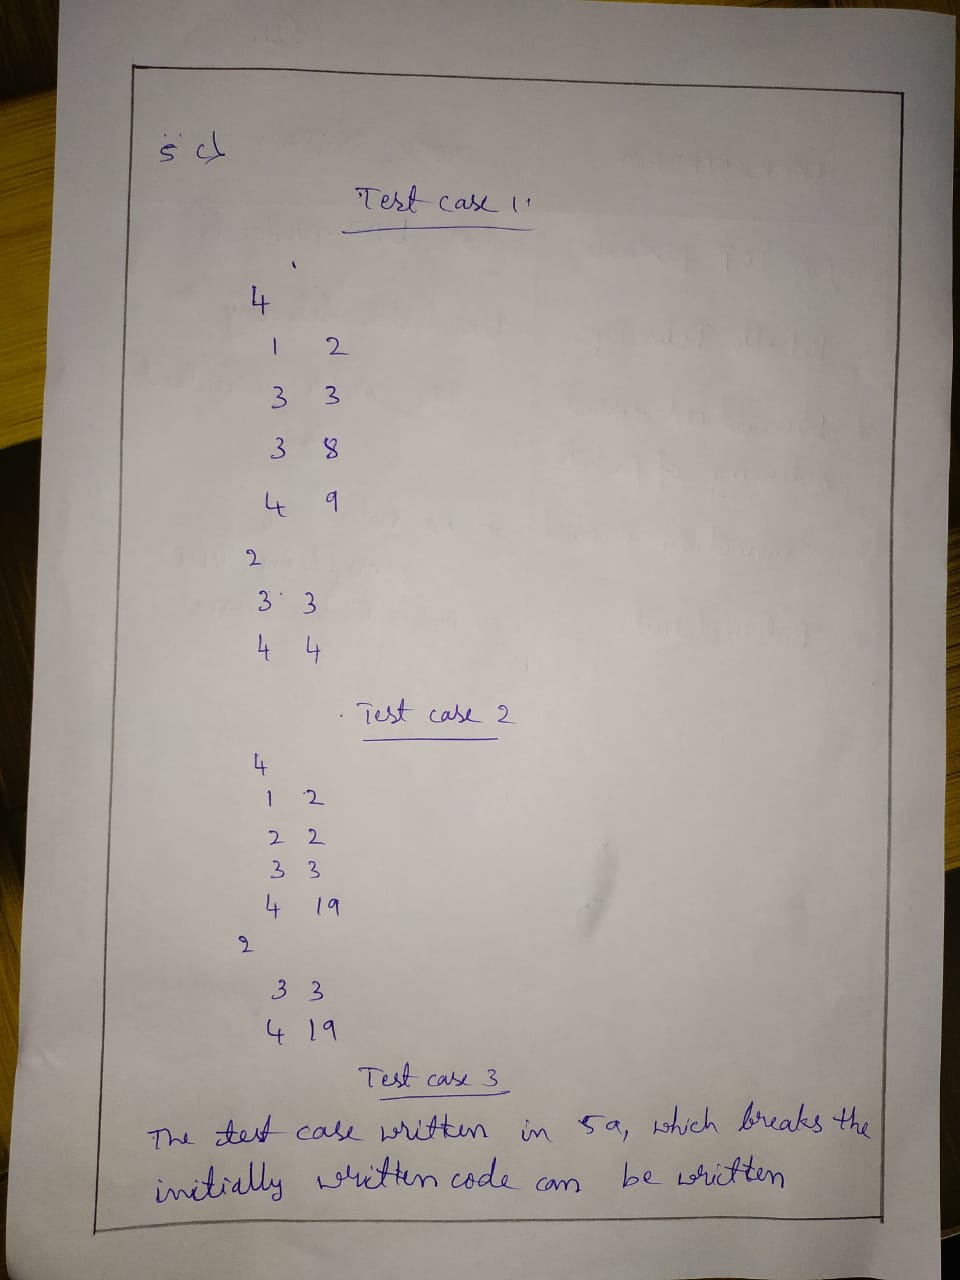 5 c)
Test case 1:
4
1 2
3 3
3 8
4 9
2
3 3
4 4
Test case 2
4
1 2
2 2
3 3
4 19
2
3 3
4 19
Test case 3
The test case written in 5a, which breaks the
initially written code can be written